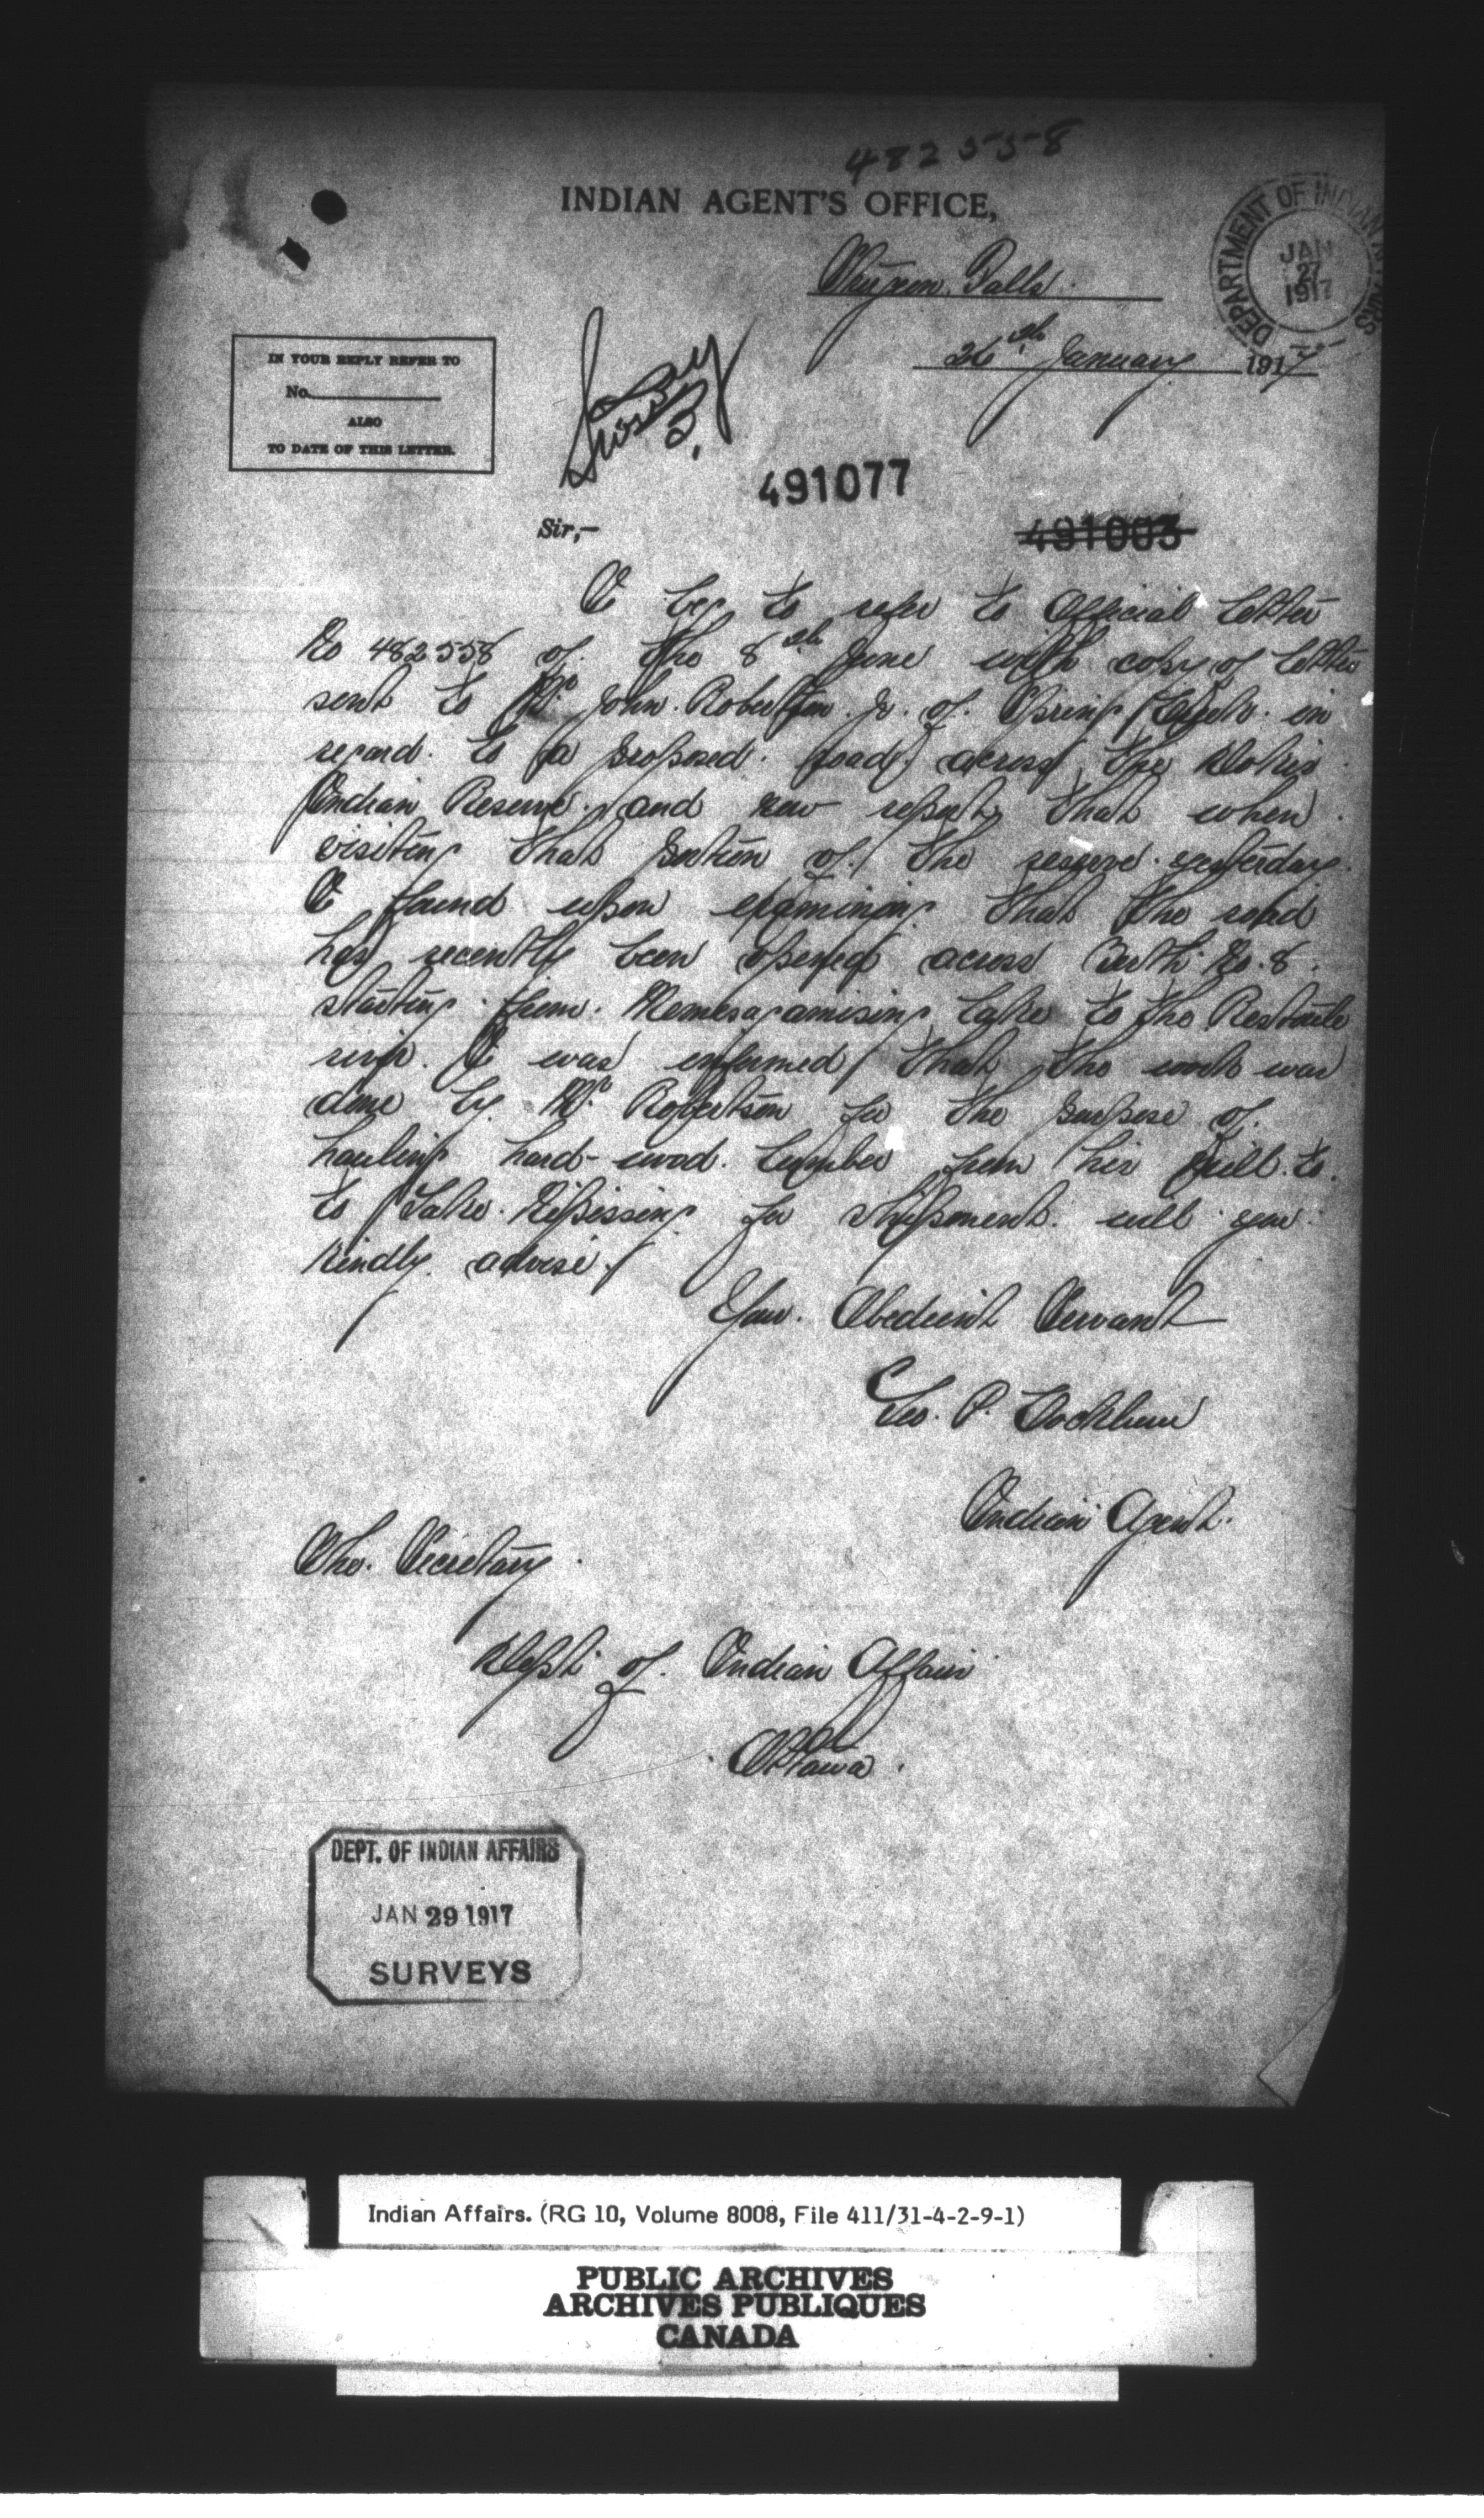 482558
INDIAN AGENT'S OFFICE,
DEPARTMENT OF INDIAN AFFAIRS
JAN
27
1917
Sturgeon Falls
26th January 1917
IN YOUR REPLY REFER TO
No.
ALSO
TO DATE OF THIS LETTER.
491077
491003
Sir,—
I beg to refer to Official Letter
No 482558 of the 8th June with copy of letter
sent to Mr John Robertson Jr. of Spring in
regard to a proposed road across the Dokis
Indian Reserve and now report that when
visiting that portion of the reserve yesterday
I found upon examining that the road
has recently been opened across Berth No. 8
starting from Memesagamising Lake to the Restoule
river. I was informed that the work was
done by Mr Robertson for the purpose of
hauling hard-wood lumber from his mill to
to Lake Nipissing for shipment. will you
kindly advise.
Your Obedient Servant
Geo. P. Cockburn
Indian Agent.
The Secretary
Dept of Indian Affairs
Ottawa.
DEPT. OF INDIAN AFFAIRS
JAN 29 1917
SURVEYS
Indian Affairs. (RG 10, Volume 8008, File 411/31-4-2-9-1)
PUBLIC ARCHIVES
ARCHIVES PUBLIQUES
CANADA